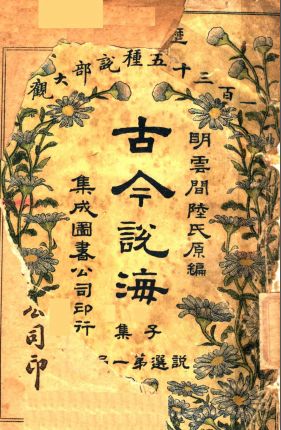 一百三十五種說部大觀
明雲間陸氏原編
古今說海
子集
說選弟一
集成圖書公司印行
公司印